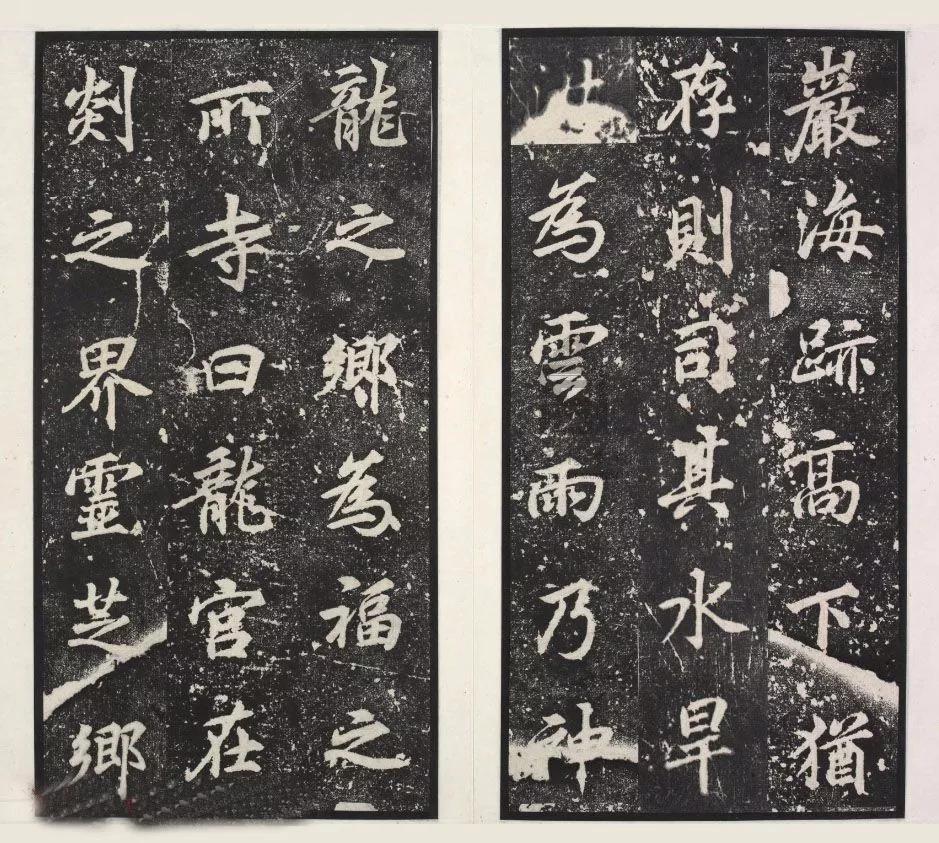 巖海跡高下猶
存則司其水旱
為雲雨乃神
龍之鄉為福之
所寺曰龍宮在
剡之界靈芝鄉